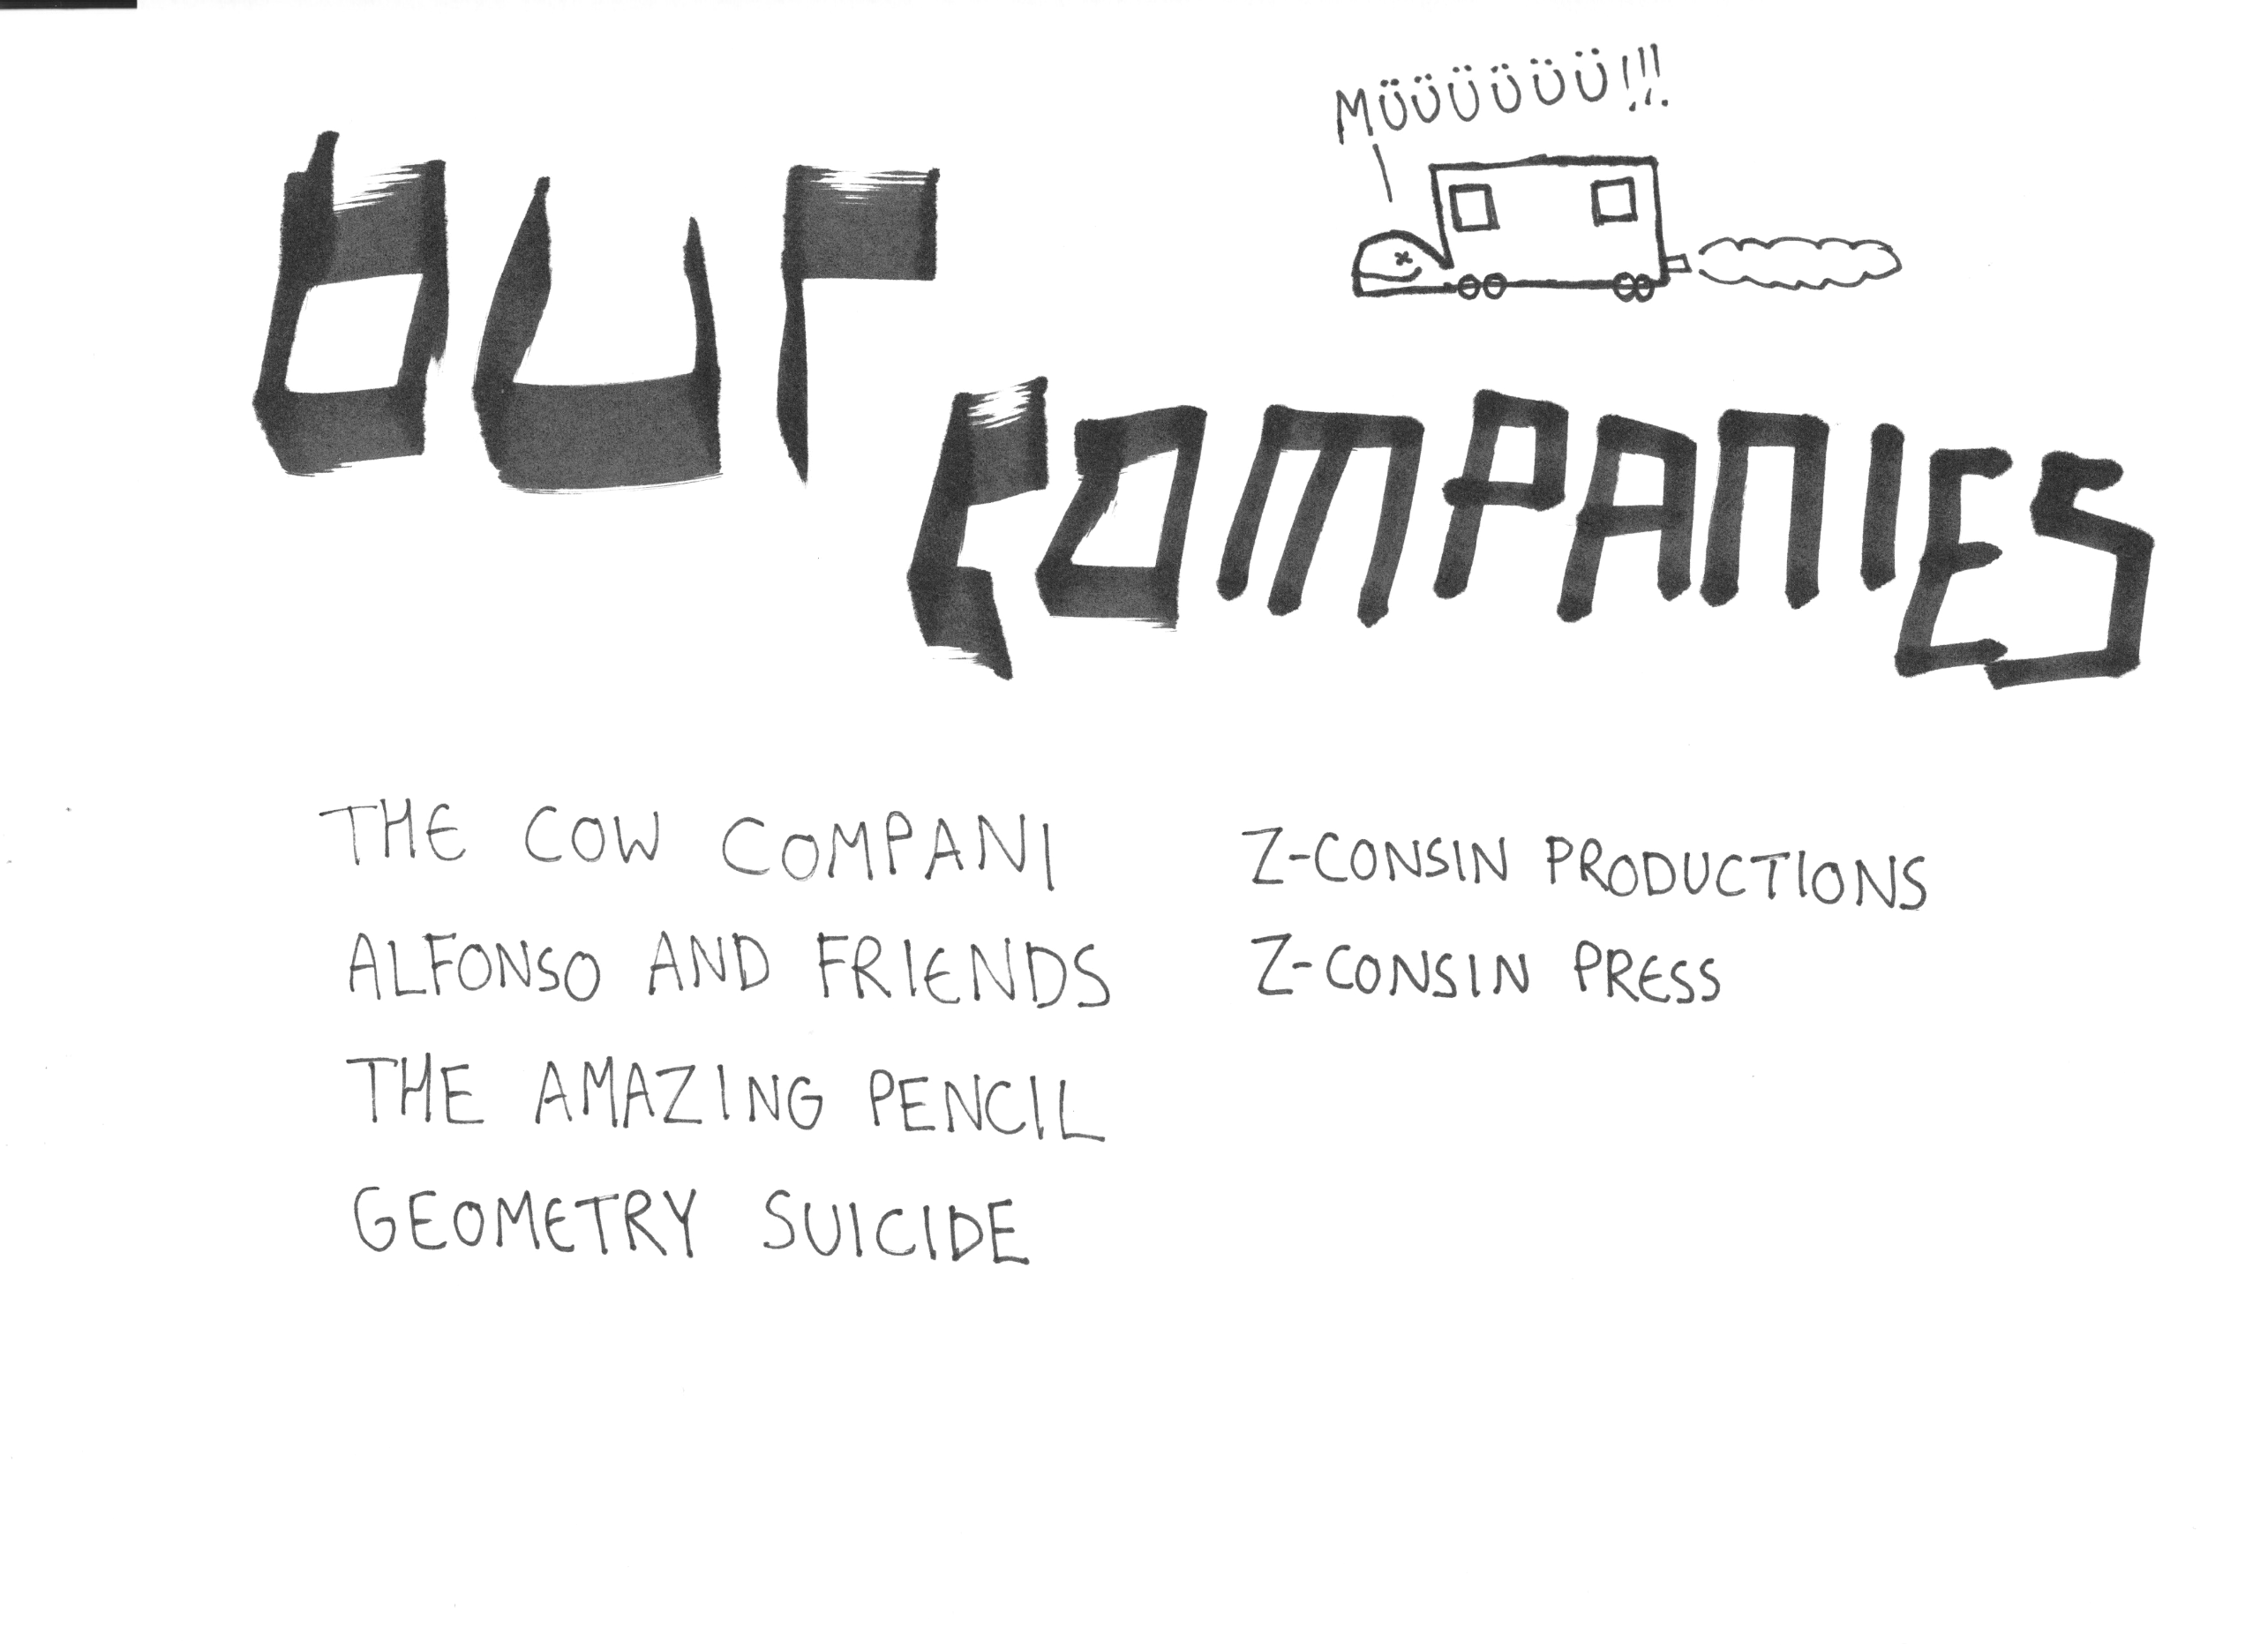 MÜÜÜÜÜÜ!!!
OUR
COMPANIES
THE COW COMPANI
ALFONSO AND FRIENDS
THE AMAZING PENCIL
GEOMETRY SUICIDE
Z-CONSIN PRODUCTIONS
Z-CONSIN PRESS